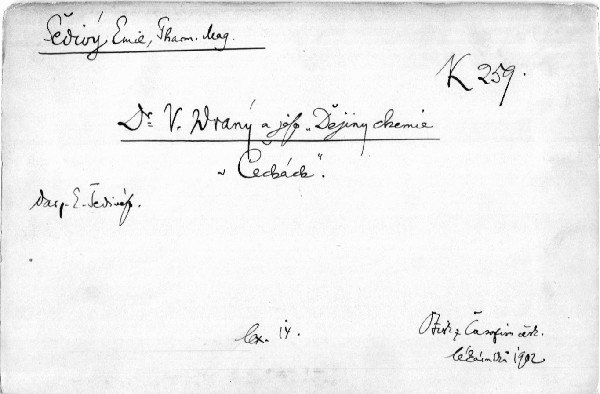 Šedivý, Emil, Pharm. Mag.
K 259.
Dr. V. Wraný a jeho „Dějiny chemie
v Čechách“.
Darp. E. Šedivého.
lex. 14.
Otisk z Časopisu česk.
lékárnictva 1902